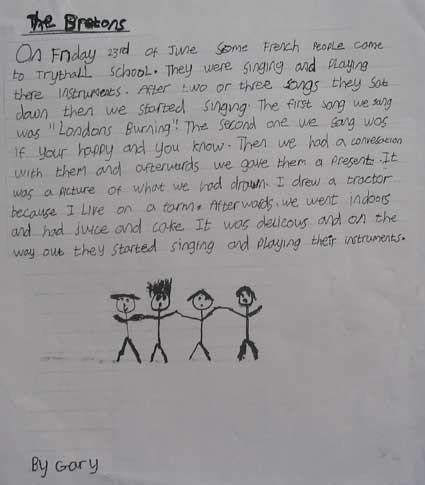 The Bretons
On Friday 23rd of June some French People came
to Trythall School. They were singing and Playing
there instruments. After two or three songs they sat
down then we started singing. The first song we sang
was "Londons Burning". The second one we sang was
if your happy and you know. Then we had a convesation
with them and afterwards we gave them a Present. It
was a Picture of what we had drawn. I drew a tractor
because I Live on a farm. Afterwards, we went indoors
and had juice and cake It was delicous and on the
way out they started singing and Playing their instruments.
By Gary